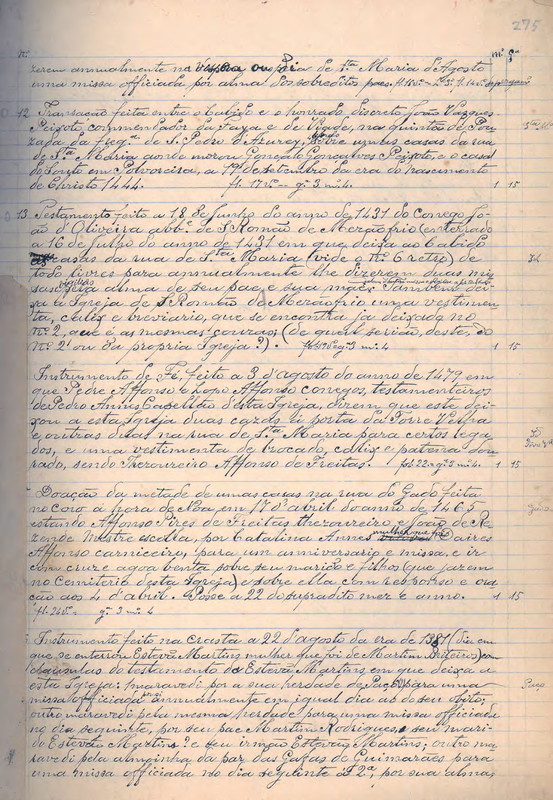 275
zerem annualmente na vespera ou dia de S.ta Maria d'Agosto
uma missa officiada por alma dos sobreditos paes.
12 Transacção feita entre o cabido e o honrado, discreto João Vasques
Peixoto, commendador da Faya e de Veade, na quinta de Pou-
zada da freg.a de S. Pedro d'Azurey, sobre umas casas da rua
de S.ta Maria aonde morou Gonçalo Gonçalves Peixoto, e o casal
do Souto em Polvoreira, a 17 de setembro da era do nascimento
de Christo 1444. fl. 17 v.º - g. 3 m. 4. 1 15
13 Testamento feito a 18 de Junho do anno de 1431 do conego Jo-
ão d'Oliveira abb.e de S. Romão de Mezãofrio (enterrado
a 16 de Julho do anno de 1431 em que deixa ao Cabido
casas da rua de S.ta Maria (vide o n.º 6 retro) de
todo livres para annualmente lhe dizerem duas mis-
sas pela alma de seu pae e sua mãe; tambem dei-
xa à Igreja de S. Romão de Mezãofrio uma vestimen-
ta, calix e breviario, que se encontra já deixado no
n.º 2, que é as mesmas couzas; (de qual serião, deste, do
n.º 2 ou da propria Igreja?). g. 3 m. 4 1 15
Instrumento de Fé, feito a 3 d'agosto do anno de 1479 em
que Pedre Affonso e Lopo Affonso conegos, testamenteiros
de Pedro Annes Capellão desta Igreja, dizem que este dei-
xou a esta Igreja duas cazas à porta da Torre Velha
e outras ditas na rua de S.ta Maria para certos lega-
dos, e uma vestimenta de brocado, calix e patena dou-
rado, sendo Thezoureiro Affonso de Freitas. fl. 22 v. g. 3 m. 4. 1 15
Doação da metade de umas casas na rua do Gado feita
no coro à hora de Nôa em 17 d'abril do anno de 1465
estando Affonso Pires de Freitas thezoureiro e João de Re-
zende mestre escolla, por Catalina Annes mulher que foi d'Aires
Affonso carniceiro, para um anniversario e missa, e ir
com cruz e agoa benta sobre seu marido e filhos (que jazem
no Cemiterio desta Igreja) e sobre ella com responso e ora-
ção aos 4 d'abril. Posse a 22 do supradito mez e anno. 1 15
fl. 24 v.º - g. 3 - m. 4
Instrumento feito na crasta a 22 d'agosto da era de 1381 (dia em
que se enterrou Estevã Martins mulher que foi de Martim) com
clausulas do testamento de Estevã Martins em que deixa a
esta Igreja: 1 maravedi por a sua herdade de para uma
missa officiada annualmente em igual dia ao do seu obito;
outro maravedi pela mesma herdade para uma missa officiada
no dia seguinte, por seu pae Martim Rodrigues, e seu mari-
do Estevão Martins? e seu irmão Estevão Martins; outro ma-
ravedi pela almoinha da par das Gafas de Guimarães para
uma missa officiada no dia seguinte à 2.ª, por sua alma;